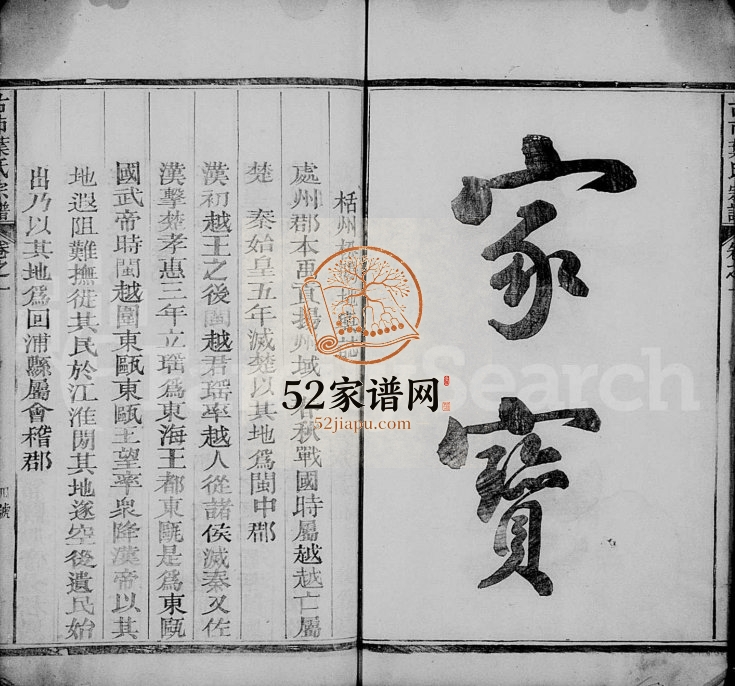 家寶
栝州
處州郡本禹貢揚州域 秋戰國時屬越越亡屬
楚 秦始皇五年滅楚以其地爲閩中郡
漢初越王之後閩越君瑶率越人從諸侯滅秦又佐
漢擊楚孝惠三年立瑶爲東海王都東甌是爲東甌
國武帝時閩越圍東甌東甌王望率衆降漢帝以其
地遐阻難撫徙其民於江淮閒其地遂空後遺民始
出乃以其地爲回浦縣屬會稽郡
葉氏宗譜
卷之一
號
52家谱网
52jiapu.com
Search